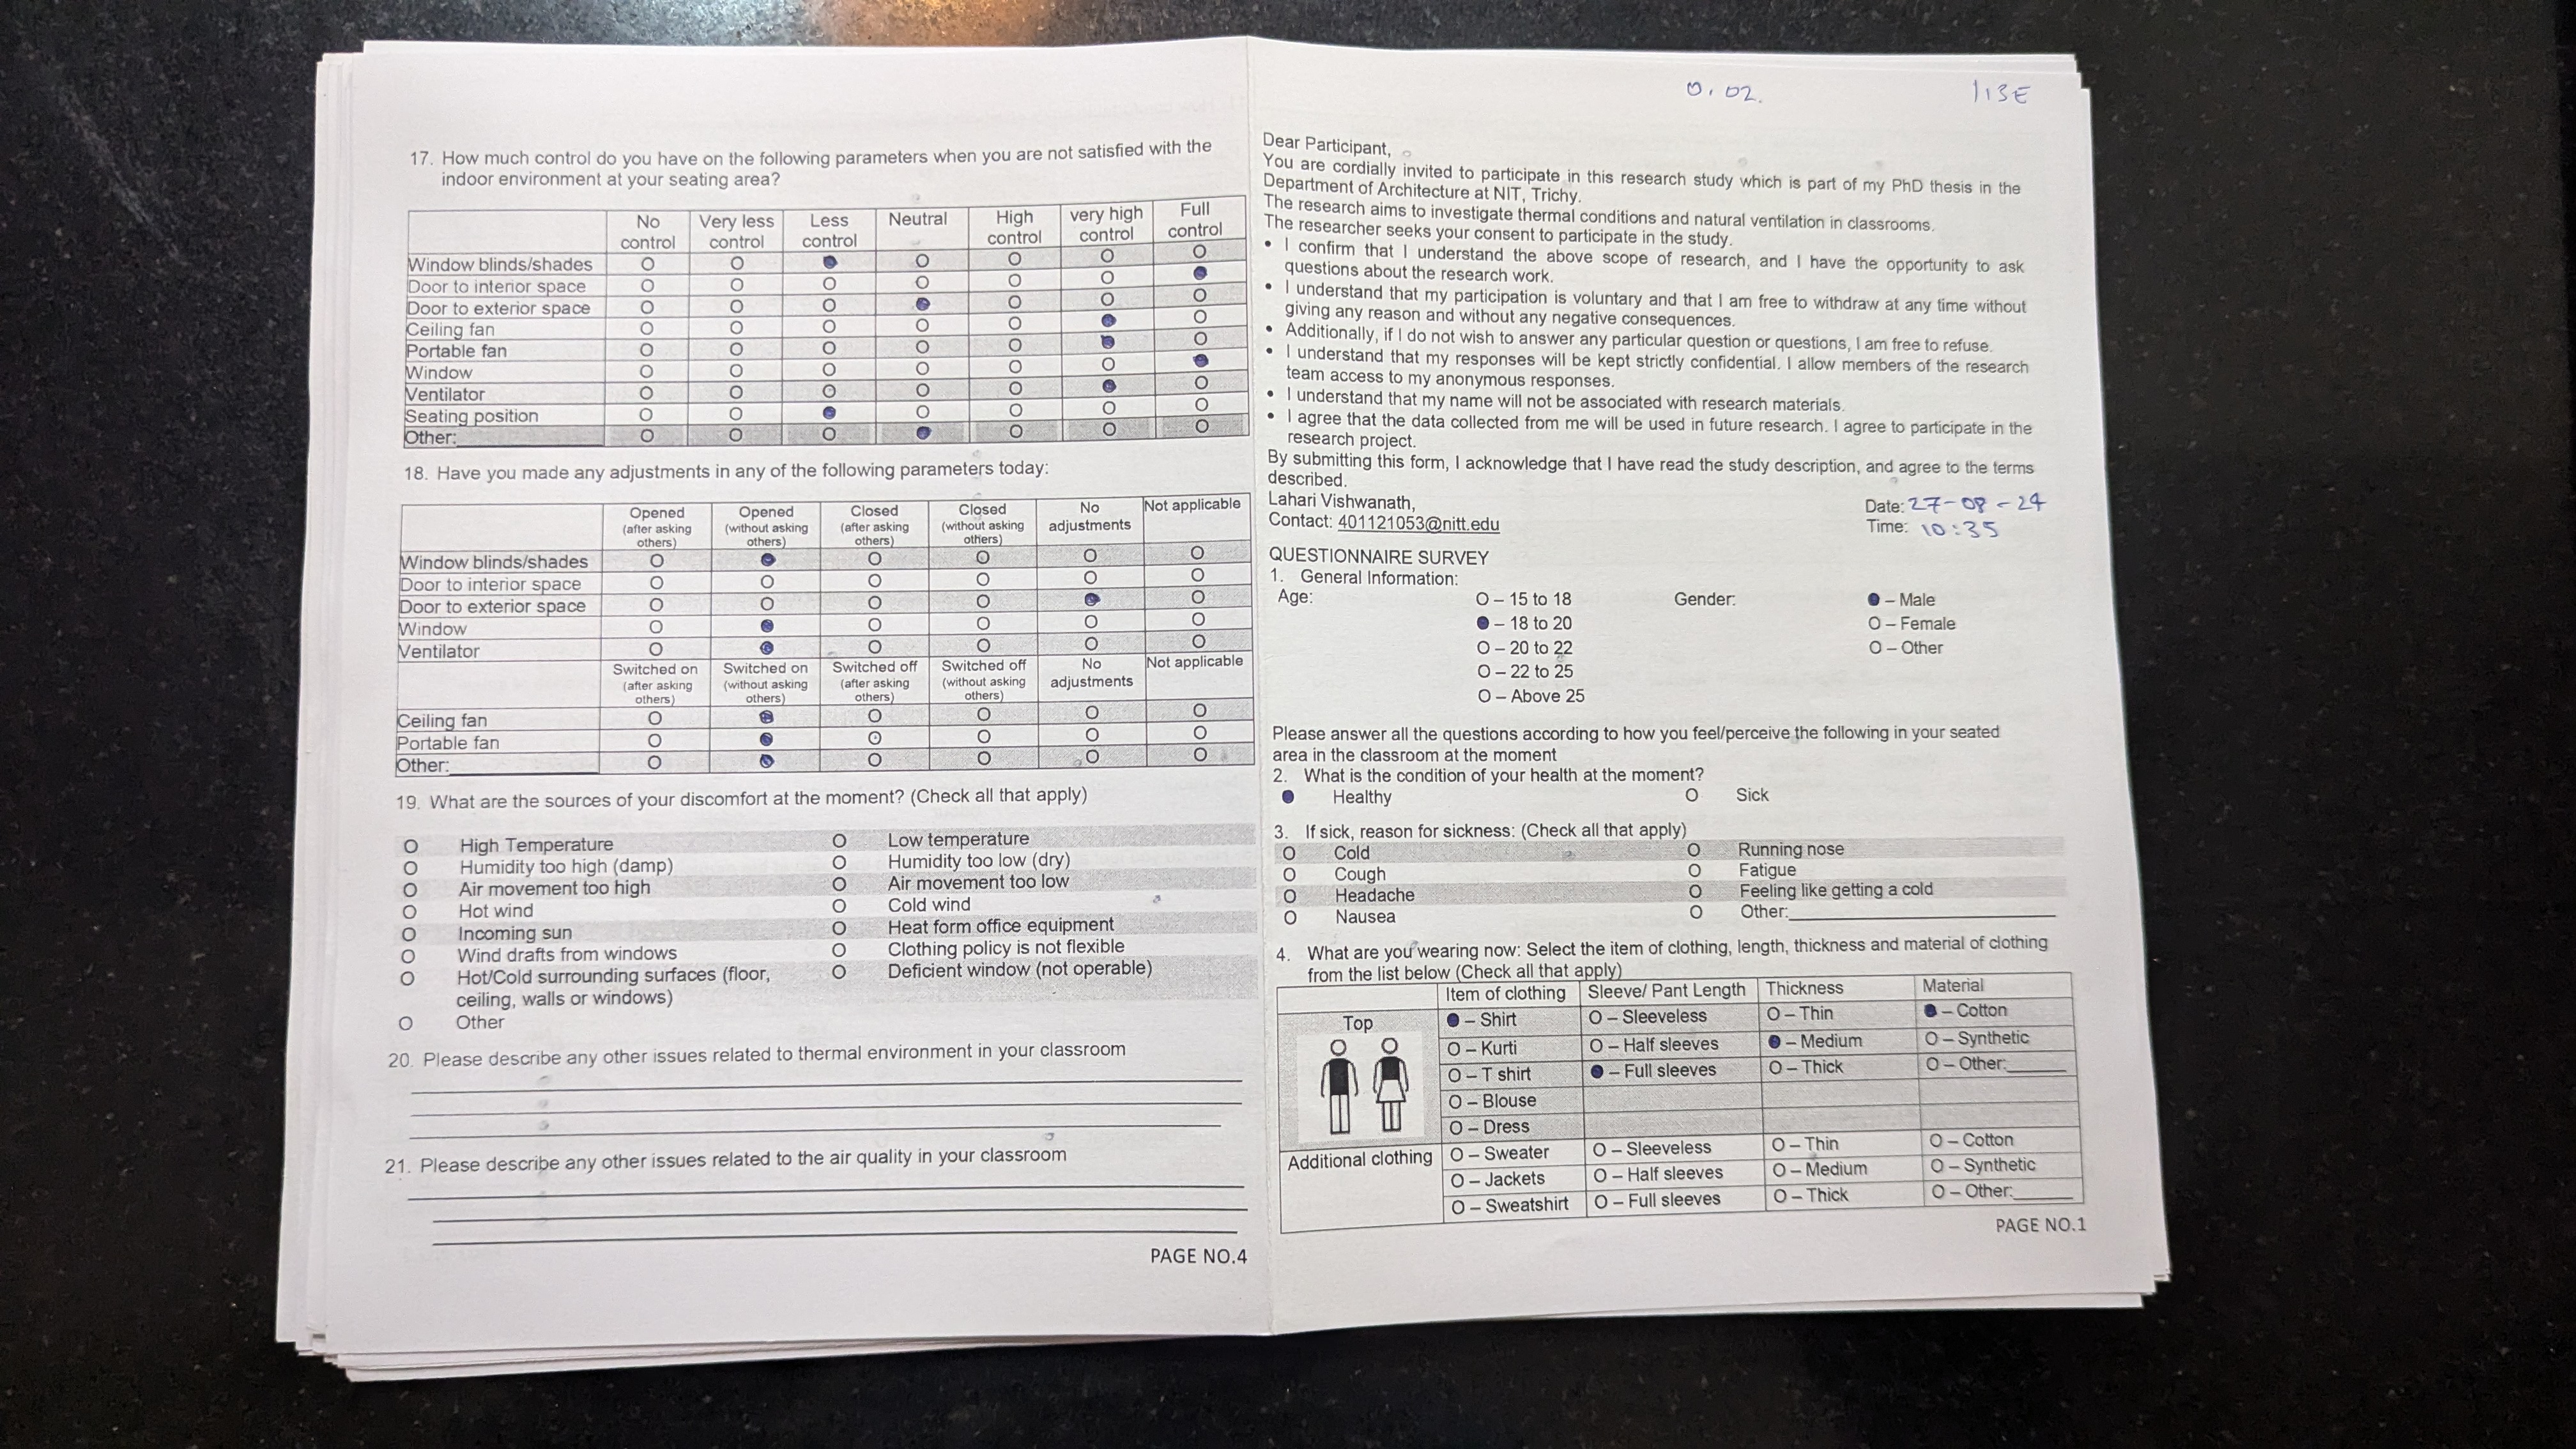 17. How much control do you have on the following parameters when you are not satisfied with the
indoor environment at your seating area?
No control Very less control Less control Neutral High control very high control Full control
Window blinds/shades O O ● O O O O
Door to interior space O O O O O O ●
Door to exterior space O O O ● O O O
Ceiling fan O O O O O ● O
Portable fan O O O O O ● O
Window O O O O O O ●
Ventilator O O O O O ● O
Seating position O O ● O O O O
Other: O O O ● O O O
18. Have you made any adjustments in any of the following parameters today:
Opened (after asking others) Opened (without asking others) Closed (after asking others) Closed (without asking others) No adjustments Not applicable
Window blinds/shades O ● O O O O
Door to interior space O O O O O O
Door to exterior space O O O O ● O
Window O ● O O O O
Ventilator O ● O O O O
Switched on (after asking others) Switched on (without asking others) Switched off (after asking others) Switched off (without asking others) No adjustments Not applicable
Ceiling fan O ● O O O O
Portable fan O ● O O O O
Other: O ● O O O O
19. What are the sources of your discomfort at the moment? (Check all that apply)
O High Temperature O Low temperature
O Humidity too high (damp) O Humidity too low (dry)
O Air movement too high O Air movement too low
O Hot wind O Cold wind
O Incoming sun O Heat form office equipment
O Wind drafts from windows O Clothing policy is not flexible
O Hot/Cold surrounding surfaces (floor, O Deficient window (not operable)
ceiling, walls or windows)
O Other
20. Please describe any other issues related to thermal environment in your classroom
21. Please describe any other issues related to the air quality in your classroom
PAGE NO.4
0.02. 113E
Dear Participant,
You are cordially invited to participate in this research study which is part of my PhD thesis in the
Department of Architecture at NIT, Trichy.
The research aims to investigate thermal conditions and natural ventilation in classrooms.
The researcher seeks your consent to participate in the study.
• I confirm that I understand the above scope of research, and I have the opportunity to ask
questions about the research work.
• I understand that my participation is voluntary and that I am free to withdraw at any time without
giving any reason and without any negative consequences.
• Additionally, if I do not wish to answer any particular question or questions, I am free to refuse.
• I understand that my responses will be kept strictly confidential. I allow members of the research
team access to my anonymous responses.
• I understand that my name will not be associated with research materials.
• I agree that the data collected from me will be used in future research. I agree to participate in the
research project.
By submitting this form, I acknowledge that I have read the study description, and agree to the terms
described.
Lahari Vishwanath, Date: 27-08-24
Contact: 401121053@nitt.edu Time: 10:35
QUESTIONNAIRE SURVEY
1. General Information:
Age: O – 15 to 18 Gender: ● – Male
● – 18 to 20 O – Female
O – 20 to 22 O – Other
O – 22 to 25
O – Above 25
Please answer all the questions according to how you feel/perceive the following in your seated
area in the classroom at the moment
2. What is the condition of your health at the moment?
● Healthy O Sick
3. If sick, reason for sickness: (Check all that apply)
O Cold O Running nose
O Cough O Fatigue
O Headache O Feeling like getting a cold
O Nausea O Other:
4. What are you wearing now: Select the item of clothing, length, thickness and material of clothing
from the list below (Check all that apply)
Item of clothing Sleeve/ Pant Length Thickness Material
Top ● – Shirt O – Sleeveless O – Thin ● – Cotton
O – Kurti O – Half sleeves ● – Medium O – Synthetic
O – T shirt ● – Full sleeves O – Thick O – Other:
O – Blouse
O – Dress
Additional clothing O – Sweater O – Sleeveless O – Thin O – Cotton
O – Jackets O – Half sleeves O – Medium O – Synthetic
O – Sweatshirt O – Full sleeves O – Thick O – Other:
PAGE NO.1